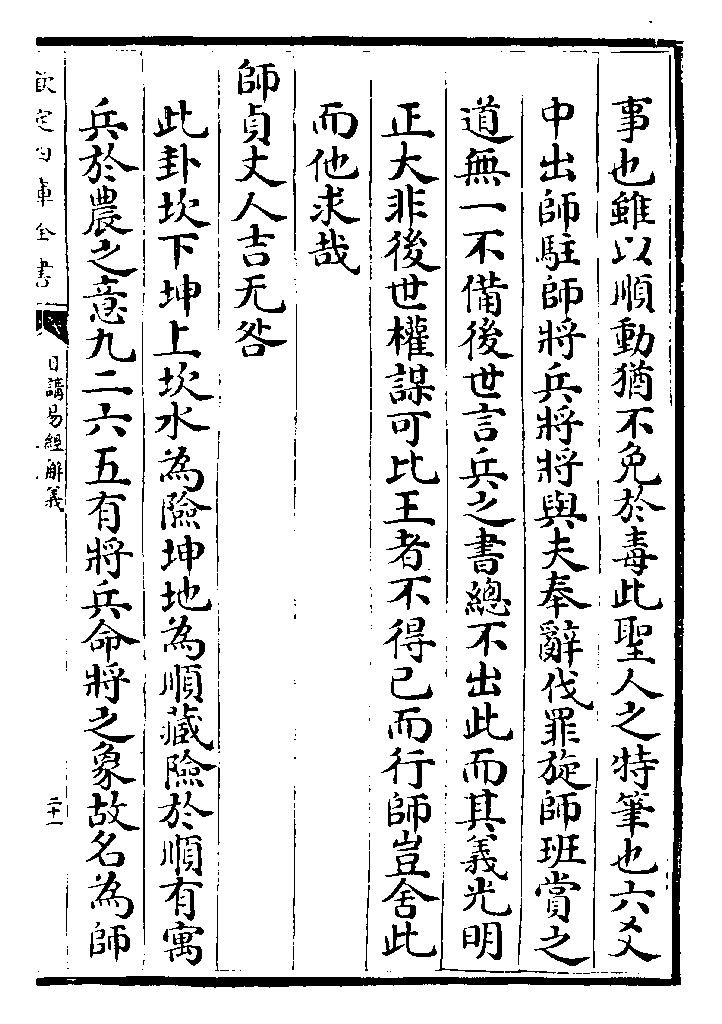 事也雖以順動猶不免於毒此聖人之特筆也六爻
中出師駐師將兵將將與夫奉辭伐罪旋師班賞之
道無一不備後世言兵之書總不出此而其義光明
正大非後世權謀可比王者不得已而行師豈舍此
而他求哉
師貞丈人吉无咎
此卦坎下坤上坎水為險坤地為順藏險於順有寓
兵於農之意九二六五有將兵命將之象故名為師
欽定四庫全書
日講易經解義
二十一